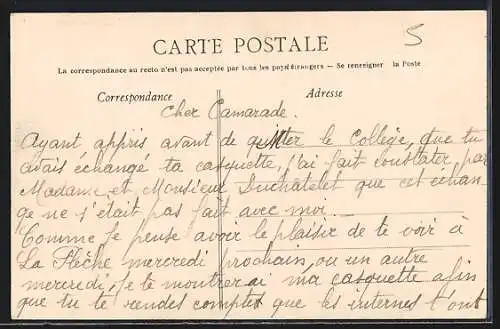 5
CARTE POSTALE
La correspondance au recto n'est pas acceptée par tous les pays étrangers — Se renseigner la Poste
Correspondance
Adresse
Cher Camarade.
Ayant appris avant de quitter le Collège, que tu
avais échangé ta casquette, j'ai fait constater par
Madame et Monsieur Duchatelet que cet échan-
ge ne s'était pas fait avec moi.
Comme je pense avoir le plaisir de te voir à
La Flèche mercredi prochain, ou un autre
mercredi, je te montrerai ma casquette afin
que tu te rendes compte que les internes t'ont